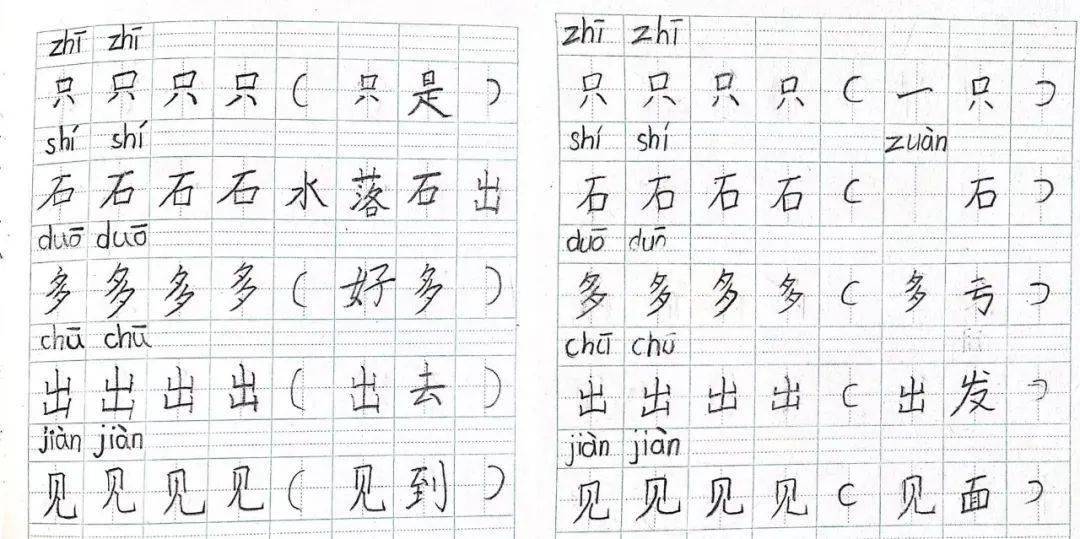 zhī zhī
只 只 只 只 ( 只 是 )
shí shí
石 石 石 石 水 落 石 出
duō duō
多 多 多 多 ( 好 多 )
chū chū
出 出 出 出 ( 出 去 )
jiàn jiàn
见 见 见 见 ( 见 到 )
zhī zhī
只 只 只 只 ( 一 只 )
shí shí zuàn
石 石 石 石 ( 石 )
duō duō
多 多 多 多 ( 多 亏 )
chū chū
出 出 出 出 ( 出 发 )
jiàn jiàn
见 见 见 见 ( 见 面 )